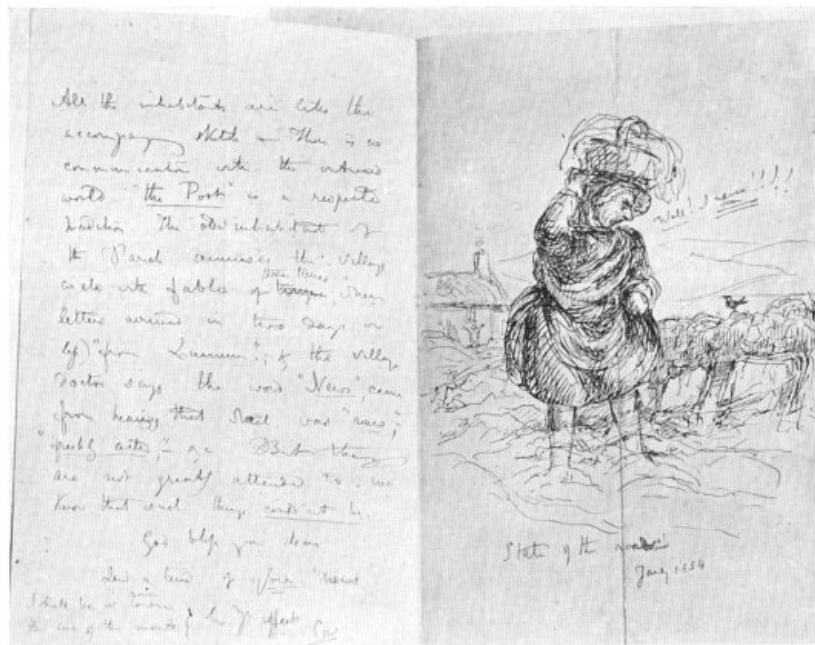 All the inhabitants are like the
accompany sketch – There is no
communication with the outward
world. "the Post" is a respected
tradition The old inhabitant of
the Parish amuses the village
circle with fables of those times, when
letters arrived in two days or
"from Lunnun"; & the village
doctor says the word "News" came
from hearing that was "new";
But they
are not greatly attended to: we
know that such things could not be.
God bless you dear
Send a line of your news
I shall be in town
the end of the month &
Well! I never!!!!
State of the roads!
Jany 1854